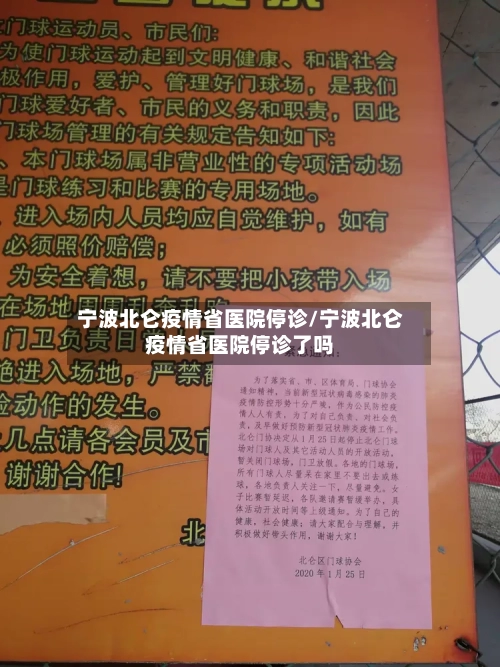 北门球运动员、市民们:
为使门球运动起到文明健康、和谐社会
极作用，爱护、管理好门球场，是我们
门球爱好者、市民的义务和职责，因此
门球场管理的有关规定告知如下:
、本门球场属非营业性的专项活动场
是门球练习和比赛的专用场地。
进入场内人员均应自觉维护，如有
必须照价赔偿；
为安全着想，请不要把小孩带入场
在场地周围
宁波北仑疫情省医院停诊/宁波北仑
疫情省医院停诊了吗
门卫负责日
进入场地，严禁
动作的发生。
几点请各会员及市
谢谢合作!
北
为了落实省、市、区体育局、门球协会
通知精神，当前新型冠状病毒感染的肺炎
疫情防控形势十分严峻，作为公民防控疫
情人人有责，为了对自己负责、对社会负
责，及早做好预防新型冠状肺炎疫情工作。
北仑门协决定从1月25日起停止北仑门球
场对门球人及其它活动人员的开放活动，
暂关闭门球场，门卫放假。各地的门球场，
所有门球人尽量呆在家里不要出去或练
球，各地负责人关注一下，尽量避免。女
子比赛暂延迟，各队邀请赛暂缓举办，具
体活动开放时间等上级通知。为了自己的
健康，社会健康；请大家配合与理解，并
积极做好带头作用，谢谢大家！
北仑区门球协会
2020年1月25日